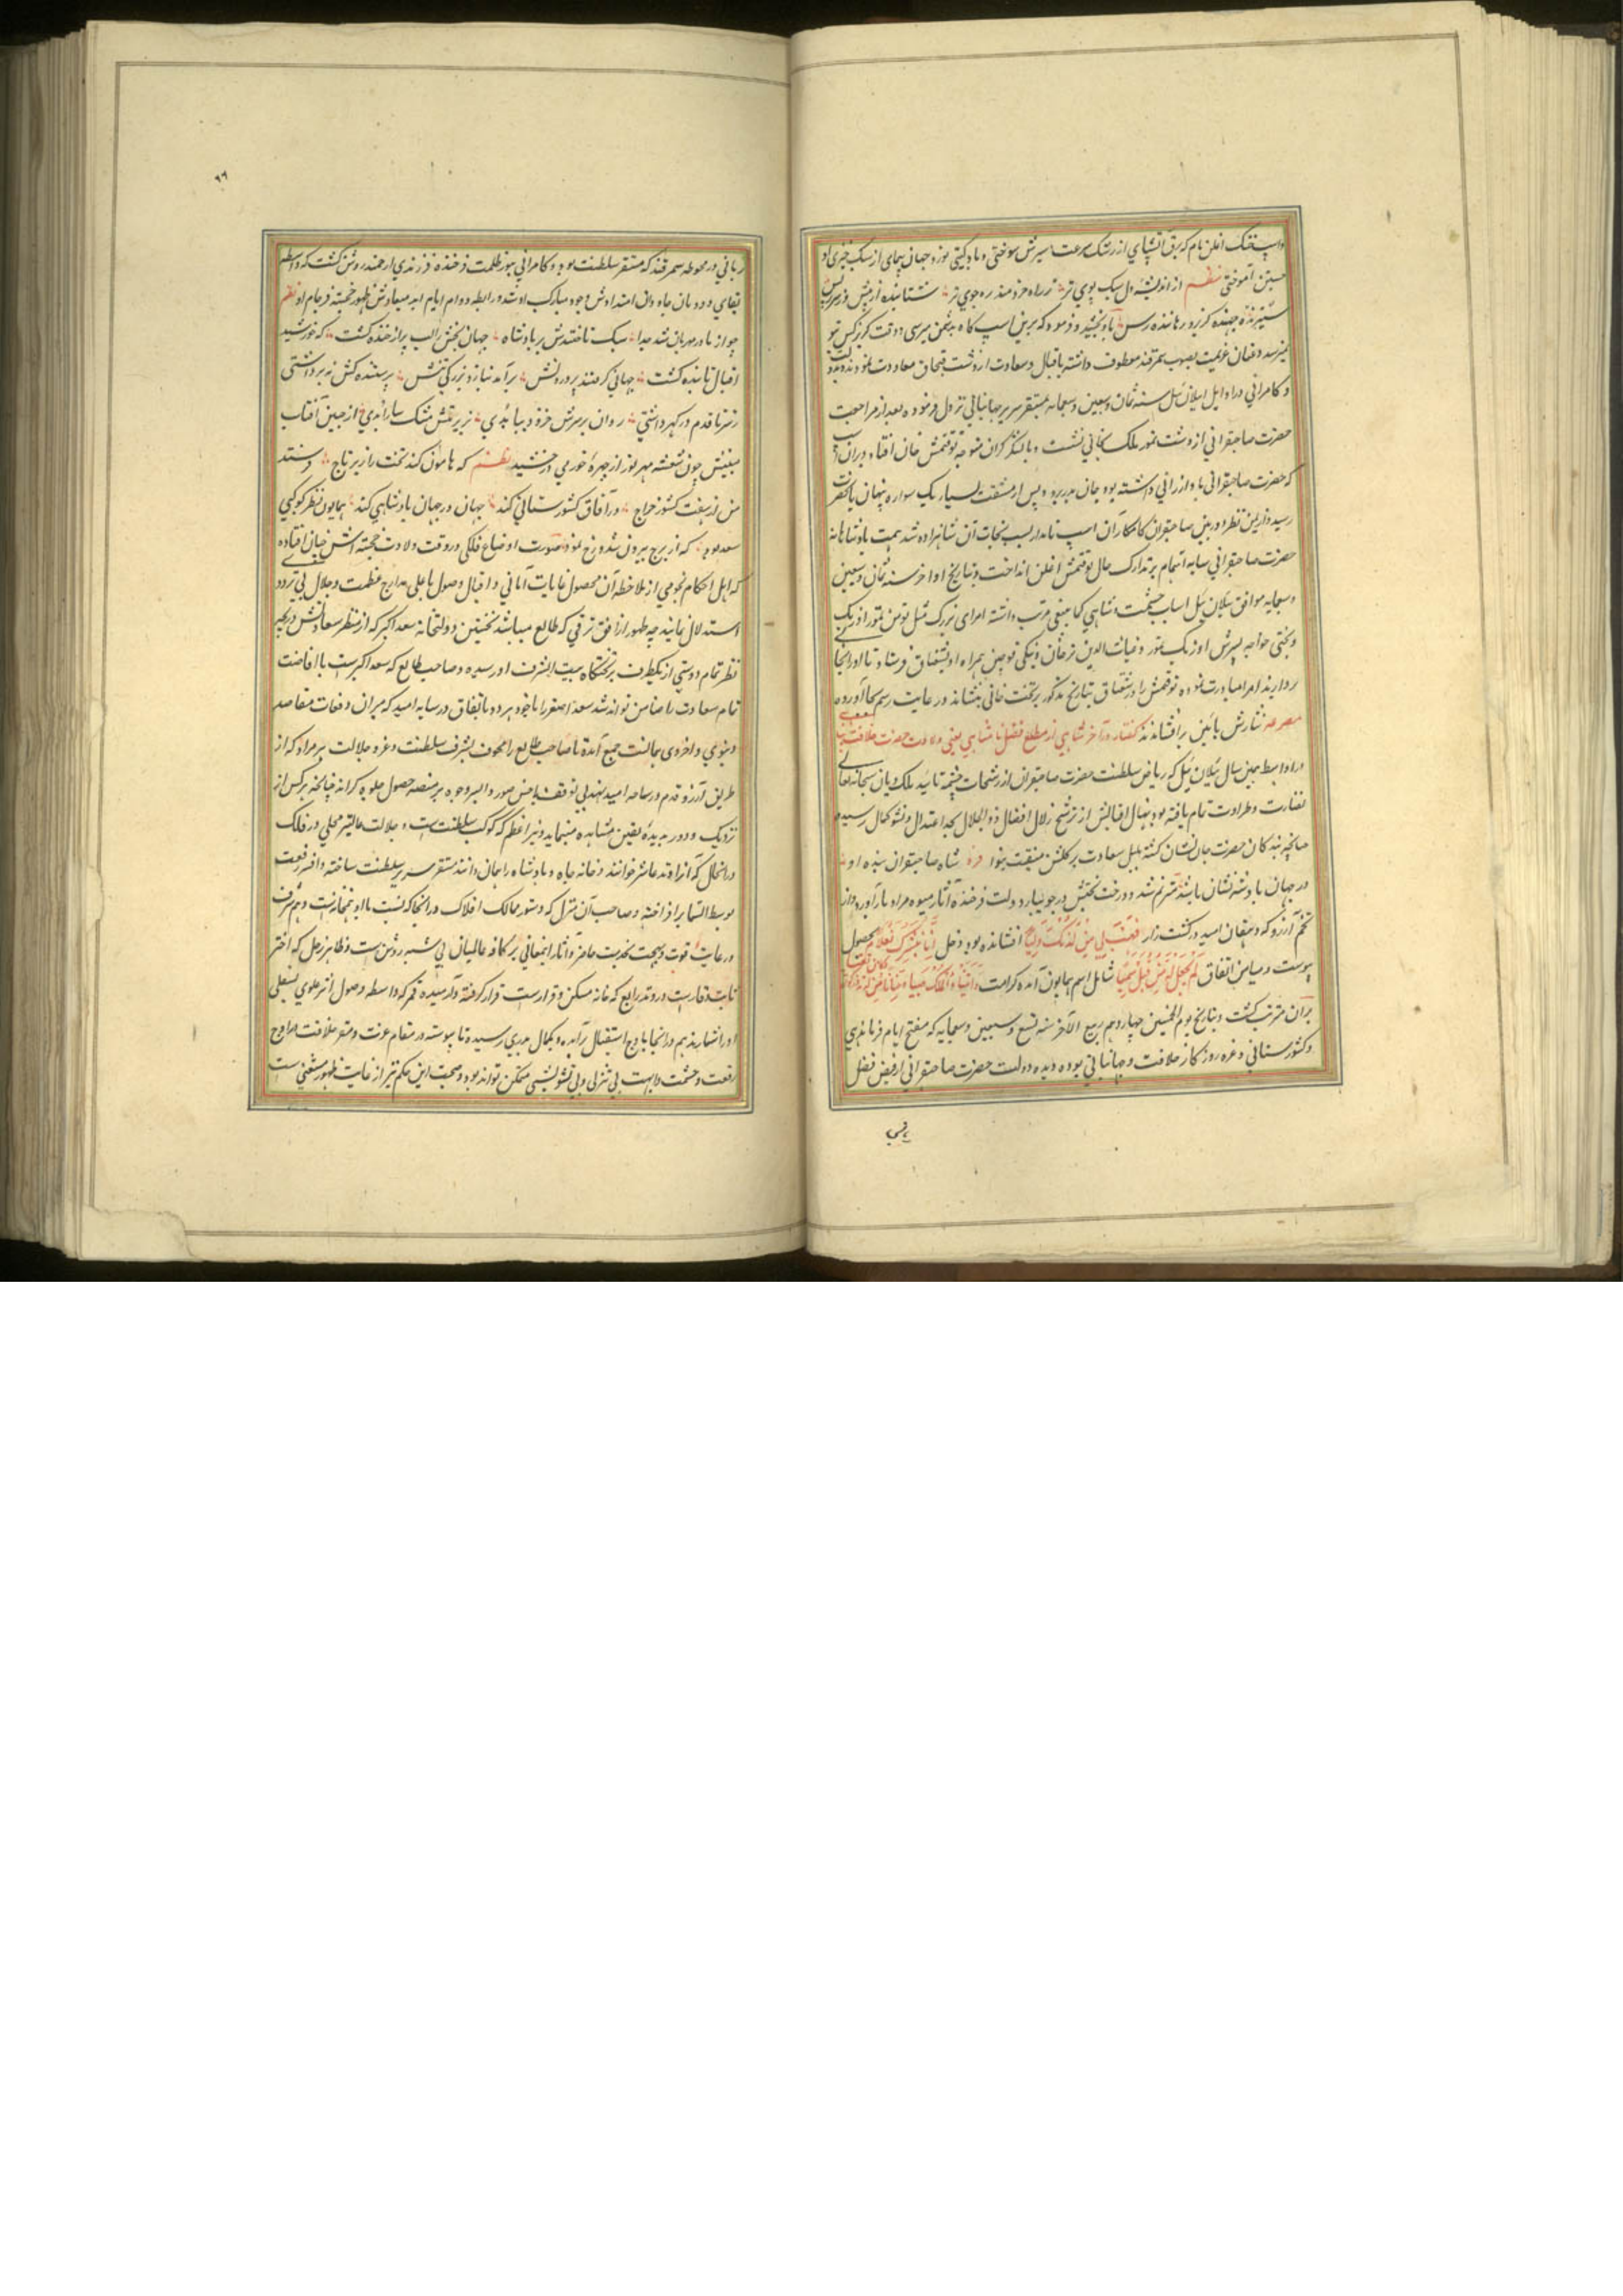 واسپ خنک اغلن نام که برق آتشپای از رشک سرعت سیرش سوختی و باد گیتی نورد جهان پیمای از سبک خیزی او
جستن آموختی نظم از اندیشه دل سبک پوی تر ز راه خردمند ره جوی تر شتابنده
ستیزنده جهنده گریزد رهاننده رس باو بخشید و فرمود که برین اسپ گاه بدشمن میرسی و وقت گریز کس بتو
نمیرسد و عنان عزیمت بصوب سمرقند معطوف داشته باقبال و سعادت از دشت قبچاق معاودت نمود
و کامرانی در اوایل ییلان ئیل سنه ثمان و سبعین و سبعمایه بمستقر سریر جهانبانی نزول فرموده بعد از مراجعت
حضرت صاحبقرانی از دشت تمور ملک بخانی نشست و با لشکر گران متوجه توقتمش خان افتاد و بران
که حضرت صاحبقرانی باو ارزانی داشته بود جان بدر برد و پس از مشقت بسیار یک سواره پنهان
رسید و ازین نظر دوربین صاحبقران کامکار آن اسپ نامدار سبب نجات آن شاهزاده شد همت پادشاهانه
حضرت صاحبقرانی سایه اهتمام بر تدارک حال توقتمش اغلن انداخت و بتاریخ اواخر سنه ثمان و سبعین
و سبعمایه موافق ییلان ئیل اسباب حشمت و شاهی کما ینبغی مرتب داشته امرای بزرگ مثل تومن تمور اوزبک
و بختی خواجه پسرش اوزبک تمور و غیاث الدین ترخان و بنکی قوجین همراه او بسقناق فرستاد تا او را بجا
بردارند امرا مبادرت نموده توقتمش را در سقناق بتاریخ مذکور بر تخت خانی بنشاندند و رعایت رسم بجا آورده
مصرعه نثارش بآئین برافشاندند گفتار در آخر شاهی از مطلع فضل نا متناهی یعنی ولادت حضرت خلافت پناه
در اواسط همین سال ییلان ئیل که ریاض سلطنت حضرت صاحبقران از رشحات چشمه تائید ملک دیان سبحانه تعالی
نضارت و طراوت تمام یافته بود و نهال اقبالش از ترشح زلال افضال ذو الجلال بحد اعتدال و نشو کمال رسیده
چنانچه بندگان حضرت جان نشان گشته بلبل سعادت بر گلشن منقبت بنوا شاه صاحبقران بنده او
در جهان پادشه نشان باشد مترنم شد و درخت بختش در جویبار دولت فرخنده آثار میوه مراد بار آورد و از
تخم آرزو که دهقان امید در کشت زار فَهَبْ لِی مِنْ لَدُنْکَ وَلِیًّا افشانده بود دخل اِنَّا نُبَشِّرُکَ بِغُلَامٍ بحصول
پیوست و میامن اتفاق لَمْ نَجْعَلْ لَهُ مِنْ قَبْلُ سَمِیًّا شامل اسم همایون آمده کرامت
بران مترتب گشت و بتاریخ یوم الخمیس چهاردهم ربیع الآخر سنه تسع و سبعین و سبعمایه که مفتح ایام فرماندهی
و کشورستانی و غره روزگار خلافت و جهانبانی بود دیده دولت حضرت صاحبقرانی از فیض فضل
ربانی
۹۹
ربانی در محوطه سمرقند که مستقر سلطنت بود و کامرانی بنور طلعت فرخنده فرزندی ارجمند روشن گشت که واسطه
بقای دودمان جاودان امتدادش وجود مبارک او شد و رابطه دوام ایام ابد میعادش ظهور خجسته فرجام او نظم
چو از مادر مهربان شد جدا سبک تاختندش بر پادشاه جهان بخش را لب پر از خنده گشت که خورشید
اقبال تابنده گشت جهانی گرفتند پروردنش برآمد بناز و بزرگی تنش پرستنده کش به برداشتی
ز سر تا قدم در گهر داشتی روان بر سرش خز و دیبا بدی بزیر پیش مشک سارا بدی از جبین آفتاب
مبینش چون شعشعه مهر نور از چهره خور می درخشید نظم که هامون کند تخت را زیر تاج فرستد
من ز هفت کشور خراج در آفاق کشورستانی کند جهان در جهان پادشاهی کند همایون نظر کوکبی
سعد بود که از برج بیرون شد و رخ نمود صورت اوضاع فلکی در وقت ولادت خجسته اش چنان افتاده
که اهل احکام نجومی از ملاحظه آن محصول غایات آمانی و اقبال و وصول باعلی مدارج عظمت و جلال بی تردد
استدلال نمایند چه ظهور از افق ترقی که طالع میباشد نخستین دولتخانه سعد اکبر که از منظر سعادتش
نظر تمام دوستی از یکطرف بر تختگاه بیت الشرف او رسیده و صاحب طالع که سعد اکبر است با افاضت
تمام سعادت را ضامن تواند شد سعد اصغر را با خود همره باتفاق در سایه امید که میزان دفعات مقاصد
دنیوی و اخروی بجانبت جمع آمده تا صاحب طالع را محفوف بشرف سلطنت و غره جلالت هر مراد که از
طریق آرزو قدم در ساحه امید نهد بی توقف باحسن صور و ایسر وجوه بر منصه حصول جلوه کرانه چنانچه هر کس از
نزدیک و دور بدیده یقین مشاهده مینماید و نیر اعظم که کوکب سلطنت است و جلالت عالیتر محلی در فلک
در انحال که آنرا وتد عاشر خوانند و خانه جاه و پادشاه را بهان دانند مستقر سریر سلطنت ساخته و افسر رفعت
بوسط السما برافراخته و صاحب آن منزل که دستور ممالک افلاک در آنجا که نسبت با او نهخانه است و هم شرف
در غایت قوت و بهجت بخدمت حاضر و آثار انمعانی بر کافه عالمیان بی شبهه روشن است و ظاهر زحل که اختر
ثابت وقار است در وتد رابع که خانه مسکن و قرار است قرار گرفته و آرمیده قمر که واسطه وصول اثر علوی بسفلی
او را شمارند هم در آنجا باوج استقبال برآمده و بکمال بدری رسیده تا پیوسته در مقام عزت و مقر خلافت مراوج
رفعت و حشمت و ابهت بی تنزلی و بی تشویشی متمکن تواند بود و صحت این حکم نیز از غایت ظهور مستغنی است